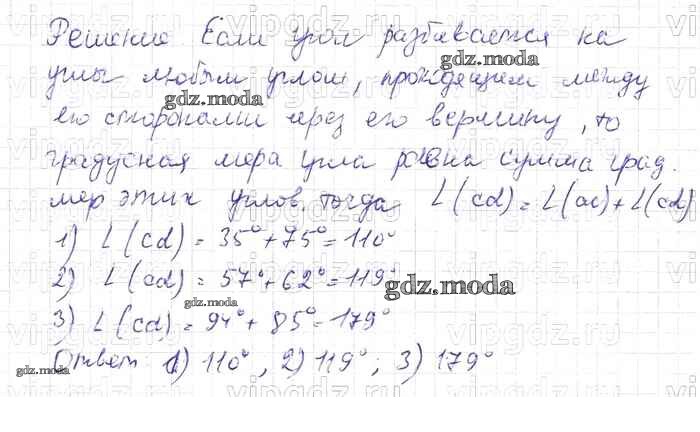 Решение Если угол разбивается на
углы любым углом, проходящим между
его сторонами через его вершину, то
градусная мера угла равна сумма град.
мер этих углов. тогда ∠(cd) = ∠(ac) + ∠(cd)
1) ∠(cd) = 35° + 75° = 110°
2) ∠(cd) = 57° + 62° = 119°
3) ∠(cd) = 94° + 85° = 179°
Ответ 1) 110°, 2) 119°; 3) 179°
gdz.moda
gdz.moda
gdz.moda
gdz.moda
gdz.moda
gdz.moda
vipgdz.ru